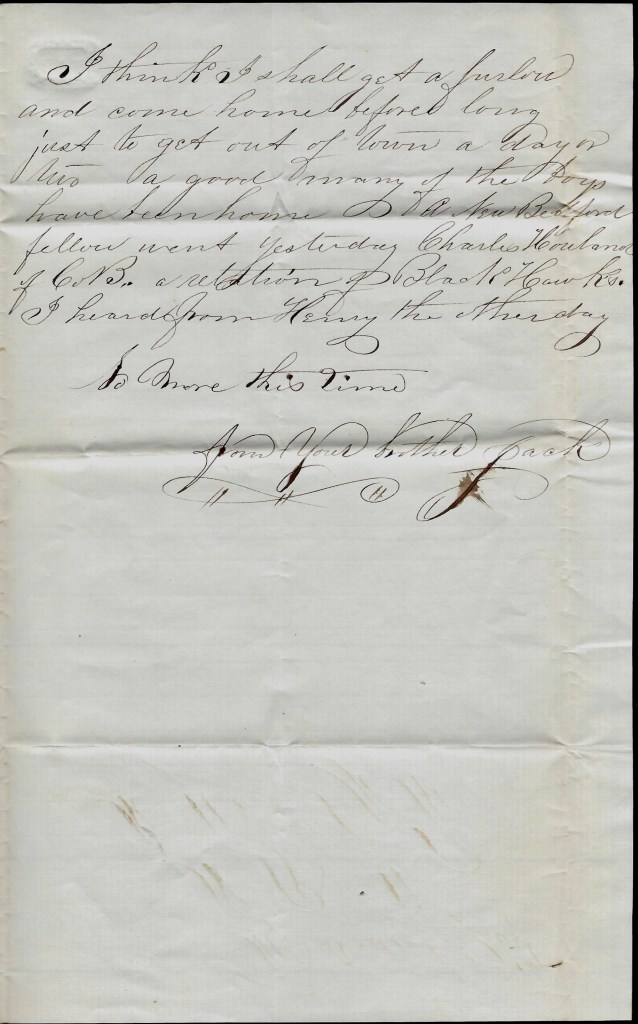 I think I shall get a furlou
and come home before long
just to get out of town a day or
two a good many of the boys
have been home A New Bedford
fellow went yesterday Charles Howland
of Co B.. a relation of Black Hawks.
I heard from Henry the other day
No More this Time
from Your brother Jack